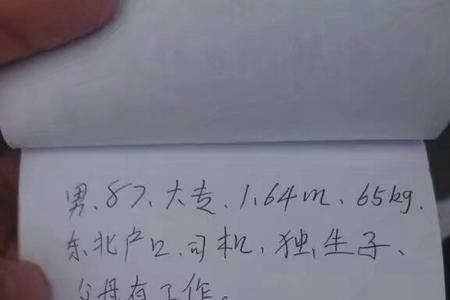 男、87、大专、1.64m、65kg、
东北户口、司机、独生子、
父母有工作。